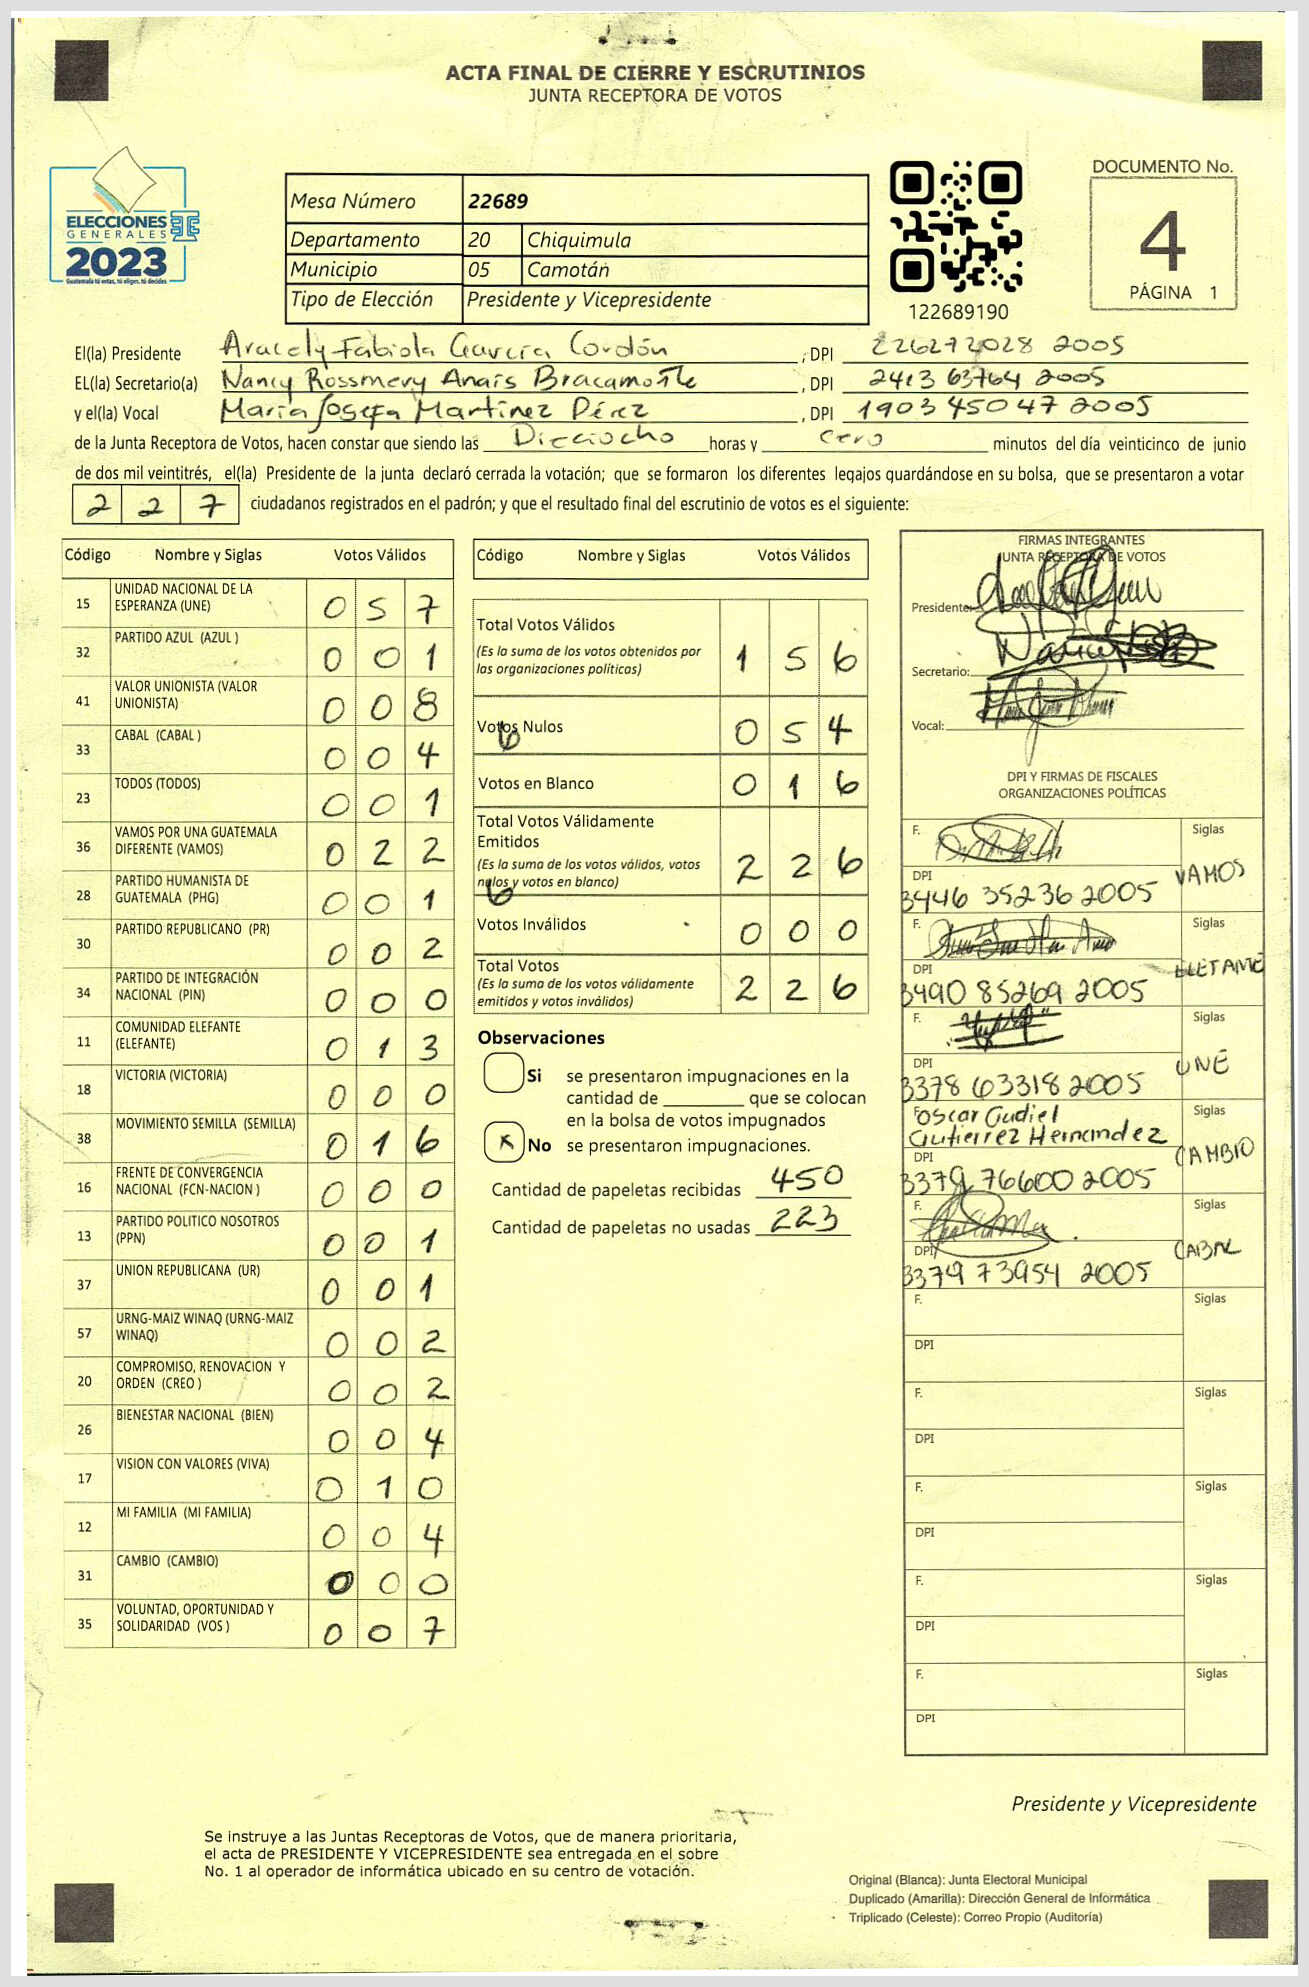 ACTA FINAL DE CIERRE Y ESCRUTINIOS
JUNTA RECEPTORA DE VOTOS
ELECCIONES
GENERALES
2023
Guatemala tú entas, tú eliges, tú decides
Mesa Número 22689
Departamento 20 Chiquimula
Municipio 05 Camotán
Tipo de Elección Presidente y Vicepresidente
122689190
DOCUMENTO No.
4
PÁGINA 1
El(la) Presidente Aracely Fabiola García Cordón , DPI 226272028 2005
EL(la) Secretario(a) Nancy Rossmery Anaís Bracamonte , DPI 2413 63764 2005
y el(la) Vocal María Josefa Martínez Pérez , DPI 1903 45047 2005
de la Junta Receptora de Votos, hacen constar que siendo las Dieciocho horas y cero minutos del día veinticinco de junio
de dos mil veintitrés, el(la) Presidente de la junta declaró cerrada la votación; que se formaron los diferentes legajos guardándose en su bolsa, que se presentaron a votar
2 2 7 ciudadanos registrados en el padrón; y que el resultado final del escrutinio de votos es el siguiente:
Código Nombre y Siglas Votos Válidos
15 UNIDAD NACIONAL DE LA ESPERANZA (UNE) 0 5 7
32 PARTIDO AZUL (AZUL ) 0 0 1
41 VALOR UNIONISTA (VALOR UNIONISTA) 0 0 8
33 CABAL (CABAL ) 0 0 4
23 TODOS (TODOS) 0 0 1
36 VAMOS POR UNA GUATEMALA DIFERENTE (VAMOS) 0 2 2
28 PARTIDO HUMANISTA DE GUATEMALA (PHG) 0 0 1
30 PARTIDO REPUBLICANO (PR) 0 0 2
34 PARTIDO DE INTEGRACIÓN NACIONAL (PIN) 0 0 0
11 COMUNIDAD ELEFANTE (ELEFANTE) 0 1 3
18 VICTORIA (VICTORIA) 0 0 0
38 MOVIMIENTO SEMILLA (SEMILLA) 0 1 6
16 FRENTE DE CONVERGENCIA NACIONAL (FCN-NACION ) 0 0 0
13 PARTIDO POLITICO NOSOTROS (PPN) 0 0 1
37 UNION REPUBLICANA (UR) 0 0 1
57 URNG-MAIZ WINAQ (URNG-MAIZ WINAQ) 0 0 2
20 COMPROMISO, RENOVACION Y ORDEN (CREO ) 0 0 2
26 BIENESTAR NACIONAL (BIEN) 0 0 4
17 VISION CON VALORES (VIVA) 0 1 0
12 MI FAMILIA (MI FAMILIA) 0 0 4
31 CAMBIO (CAMBIO) 0 0 0
35 VOLUNTAD, OPORTUNIDAD Y SOLIDARIDAD (VOS ) 0 0 7
Código Nombre y Siglas Votos Válidos
Total Votos Válidos 1 5 6
(Es la suma de los votos obtenidos por
las organizaciones políticas)
Votos Nulos 0 5 4
6
Votos en Blanco 0 1 6
Total Votos Válidamente
Emitidos 2 2 6
(Es la suma de los votos válidos, votos
nulos y votos en blanco)
6
Votos Inválidos 0 0 0
Total Votos 2 2 6
(Es la suma de los votos válidamente
emitidos y votos inválidos)
Observaciones
Si se presentaron impugnaciones en la
cantidad de ________ que se colocan
en la bolsa de votos impugnados
No se presentaron impugnaciones.
Cantidad de papeletas recibidas 450
Cantidad de papeletas no usadas 223
FIRMAS INTEGRANTES
JUNTA RECEPTORA DE VOTOS
Presidente:
Secretario:
Vocal:
DPI Y FIRMAS DE FISCALES
ORGANIZACIONES POLÍTICAS
F. Siglas
DPI VAMOS
3446 35236 2005
F. Siglas
DPI ELEFANTE
3490 85269 2005
F. Siglas
DPI UNE
3378 63318 2005
F. Oscar Gudiel Siglas
Gutierrez Hernandez
DPI CAMBIO
3379 76600 2005
F. Siglas
DPI CABAL
3379 73954 2005
F. Siglas
DPI
F. Siglas
DPI
F. Siglas
DPI
F. Siglas
DPI
F. Siglas
DPI
Presidente y Vicepresidente
Se instruye a las Juntas Receptoras de Votos, que de manera prioritaria,
el acta de PRESIDENTE Y VICEPRESIDENTE sea entregada en el sobre
No. 1 al operador de informática ubicado en su centro de votación.
Original (Blanca): Junta Electoral Municipal
Duplicado (Amarilla): Dirección General de Informática
Triplicado (Celeste): Correo Propio (Auditoría)